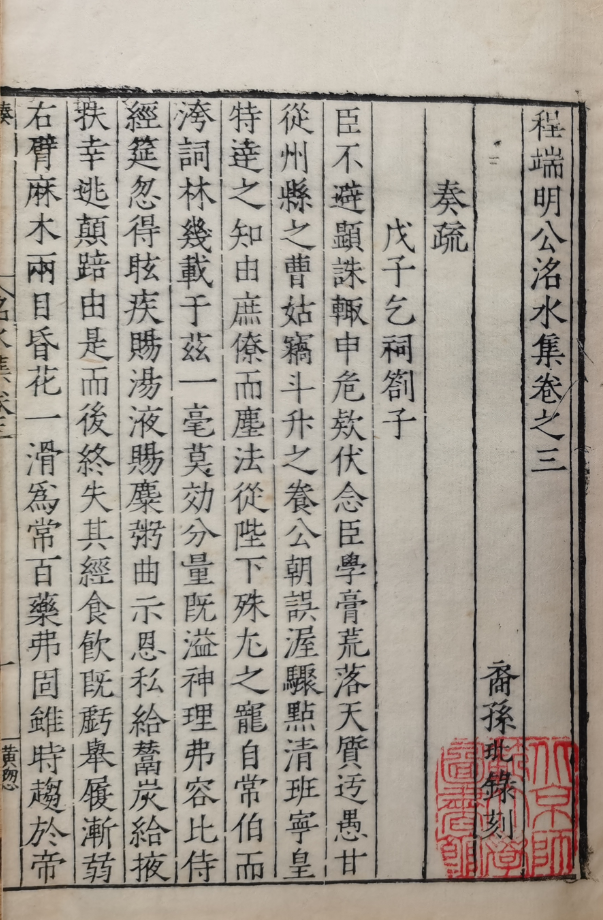 程端明公洺水集卷之三
裔孫玭錄刻
奏疏
戊子乞祠劄子
臣不避顯誅輙申危欵伏念臣學膏荒落天質迃愚甘
從州縣之曹姑竊斗升之養公朝誤渥驟點清班寧皇
特達之知由庶僚而塵法從陛下殊尤之寵自常伯而
洿詞林幾載于茲一毫莫効分量旣溢神理弗容比侍
經筵忽得眩疾賜湯液賜麋粥曲示恩私給蓐炭給掖
扶幸逃顛踣由是而後終失其經食飮旣虧舉履漸弱
右臂麻木兩目昏花一滑爲常百藥弗固雖時趨於帝
奏
洺水集卷三
一